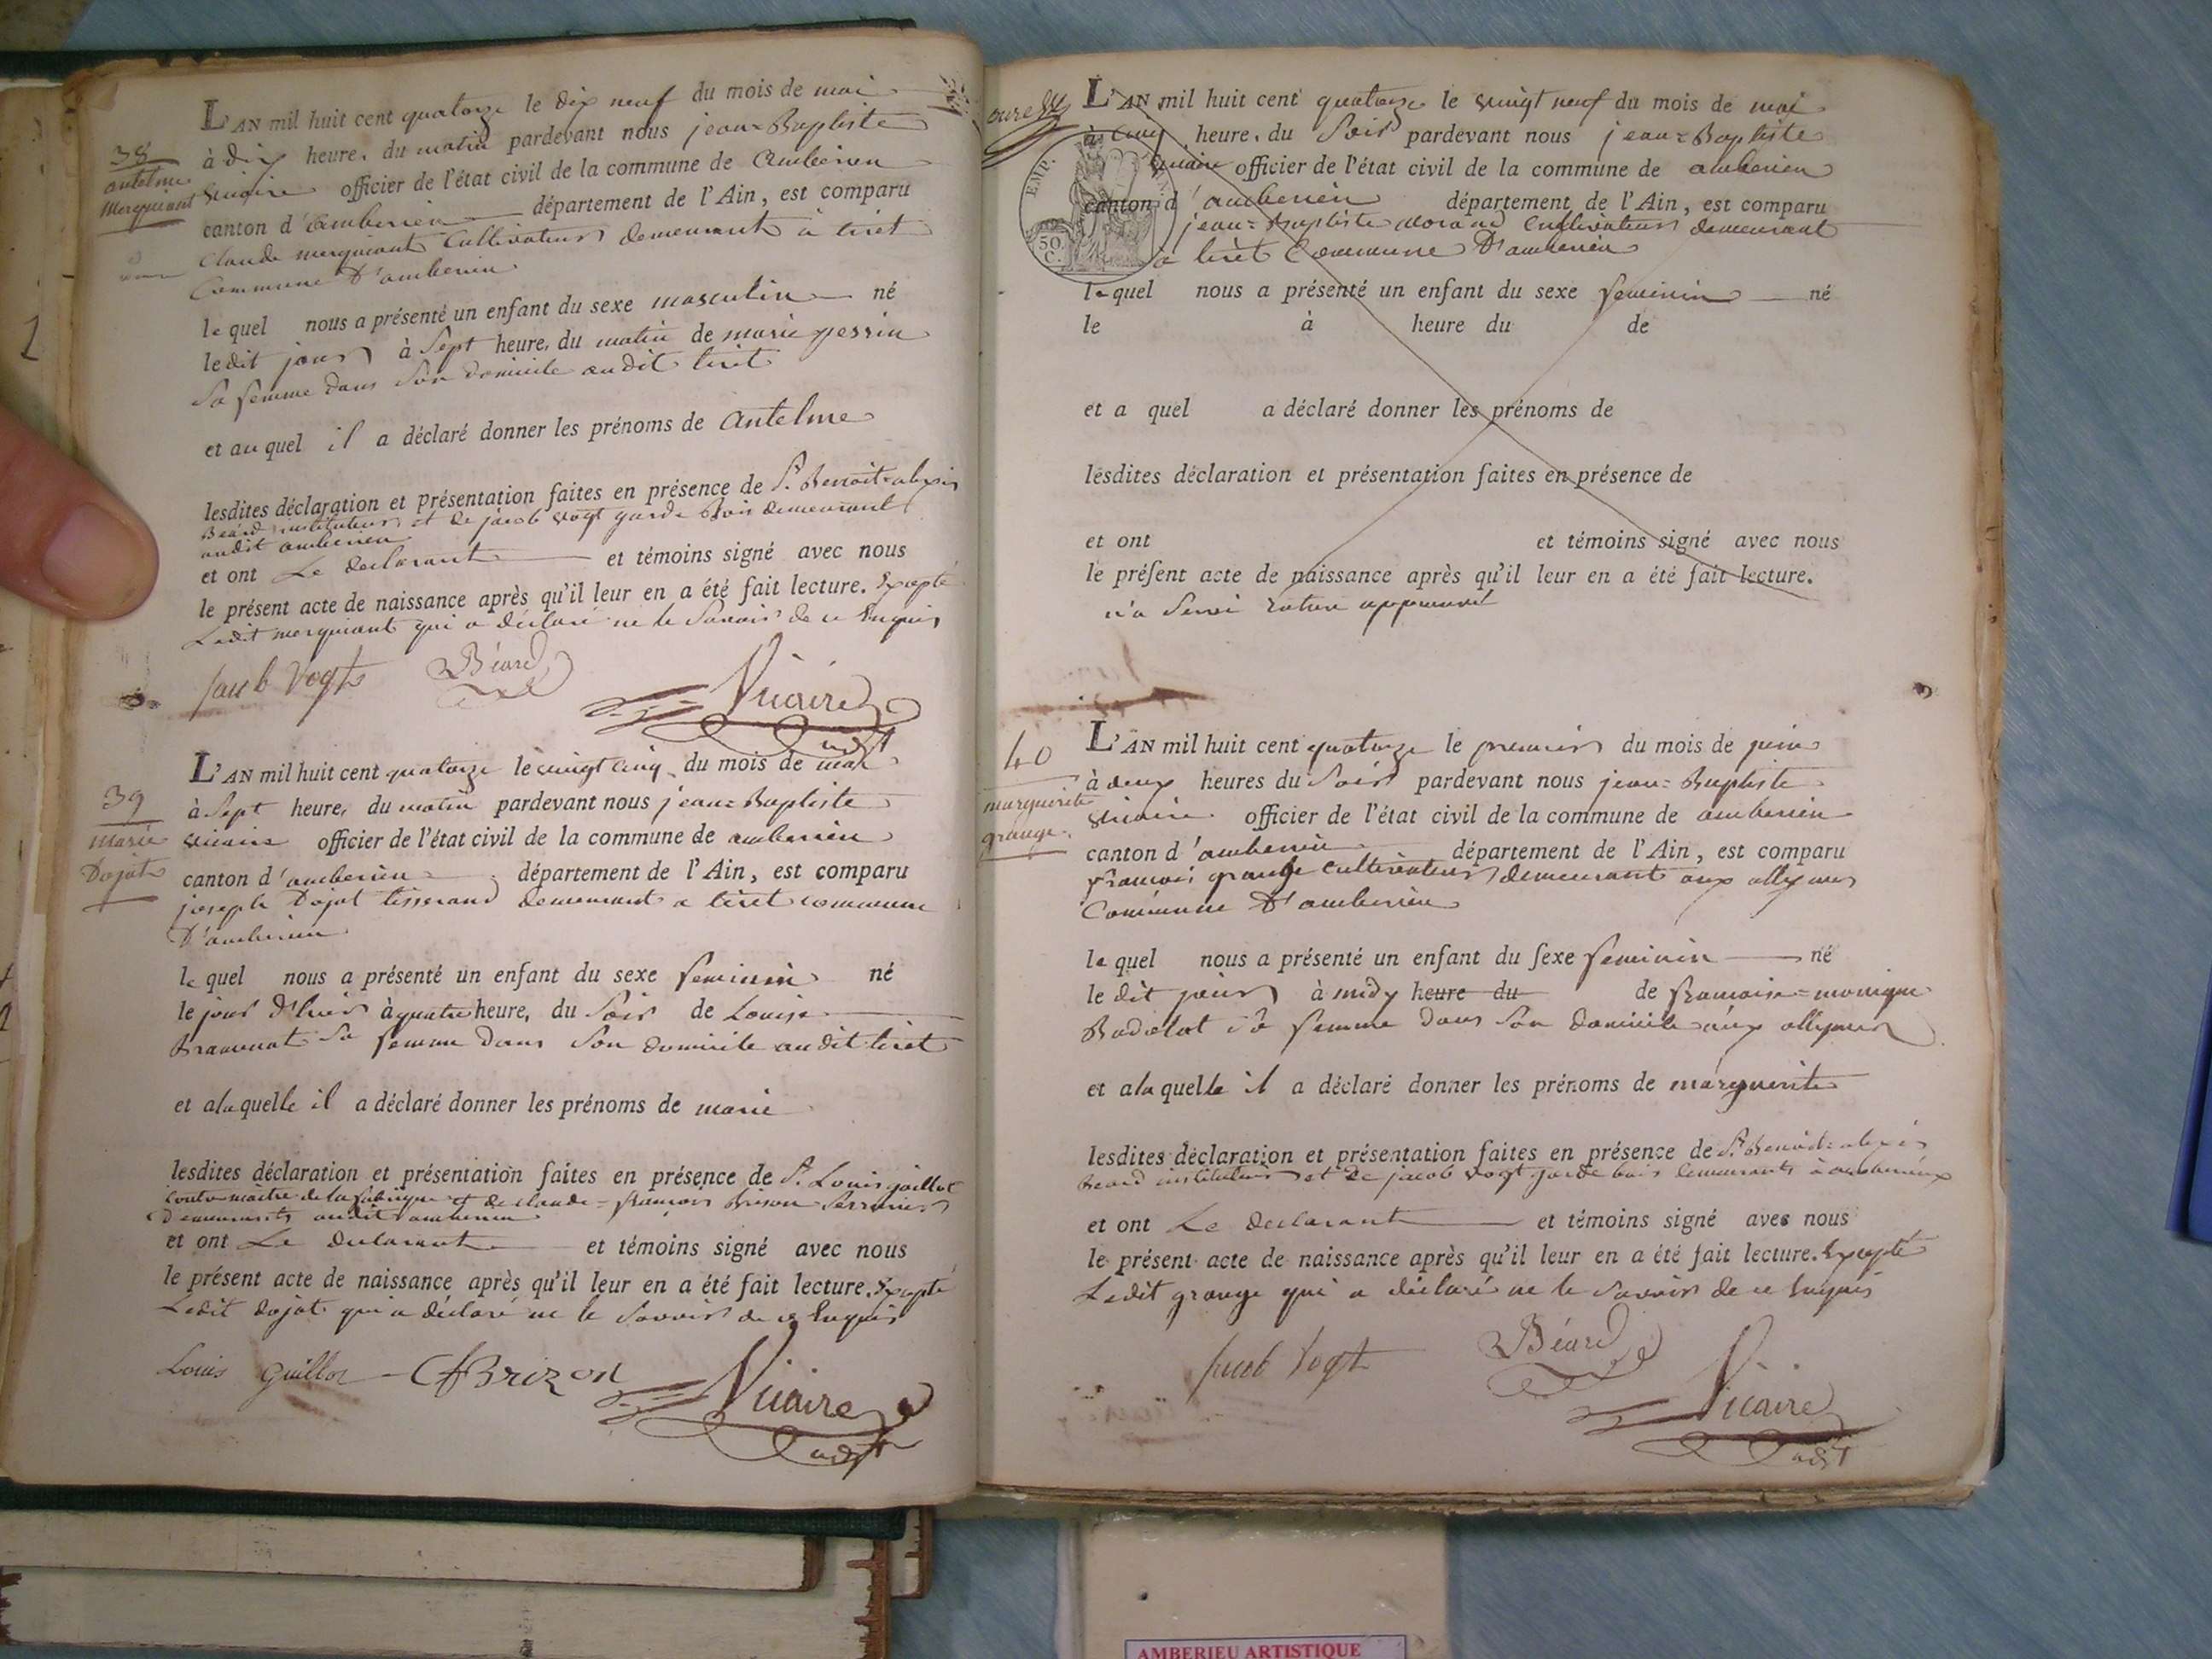 L'AN mil huit cent quatorze le dix neuf du mois de mai
38
à dix heure, du matin pardevant nous jean=Baptiste
antelme
vicaire officier de l'état civil de la commune de Amberieu
Merquiant
canton d'amberieu département de l'Ain, est comparu
Claude merquiant Cultivateur demeurant à tiret
Commune d'amberieu
le quel nous a présenté un enfant du sexe masculin né
ledit jour à Sept heure, du matin de marie perrin
Sa femme dans Son domicile audit tiret
et au quel il a déclaré donner les prénoms de Antelme
lesdites déclaration et présentation faites en présence de Sr. Benoit=alexis
Béard instituteur et de jacob vogt garde Bois demeurant
audit amberieu
et ont Le declarant et témoins signé avec nous
le présent acte de naissance après qu'il leur en a été fait lecture. Excepté
Ledit merquiant qui a déclaré ne le Savoir de ce Enquis
Jacob Vogt Béard Vicaire
adjt
L'AN mil huit cent quatorze le vingt cinq du mois de mai
39
à Sept heure, du matin pardevant nous jean=Baptiste
marie
vicaire officier de l'état civil de la commune de amberieu
Dojat
canton d'amberieu département de l'Ain, est comparu
joseph Dojat tisserand demeurant a tiret commune
D'amberieu
le quel nous a présenté un enfant du sexe feminin né
le jour d'hier à quatre heure, du Soir de Louise
Sa femme dans Son domicile audit tiret
et a la quelle il a déclaré donner les prénoms de marie
lesdites déclaration et présentation faites en présence de Sr. Louis guillot
contre maitre de la fabrique et de claude=françois Brison Serrurier
demeurants audit amberieu
et ont Le declarant et témoins signé avec nous
le présent acte de naissance après qu'il leur en a été fait lecture. Excepté
Ledit dojat qui a déclaré ne le Savoir de ce Enquis
Louis Guillot CFBrizon Vicaire
adjt
L'AN mil huit cent quatorze le vingt neuf du mois de mai
à Cinq heure, du Soir pardevant nous jean=Baptiste
vicaire officier de l'état civil de la commune de amberieu
EMP.
canton d'amberieu département de l'Ain, est comparu
jean=Baptiste morand Cultivateur demeurant
50.
C.
a tiret Commune D'amberieu
le quel nous a présenté un enfant du sexe feminin né
le à heure du de
et a quel a déclaré donner les prénoms de
lesdites déclaration et présentation faites en présence de
et ont et témoins signé avec nous
le présent acte de naissance après qu'il leur en a été fait lecture.
n'a Servi rature approuvé
L'AN mil huit cent quatorze le premier du mois de juin
40
à deux heures du Soir pardevant nous jean=Baptiste
marguerite
vicaire officier de l'état civil de la commune de amberieu
grange
canton d'amberieu département de l'Ain, est comparu
françois grange Cultivateur demeurant aux allymes
Commune D'amberieu
le quel nous a présenté un enfant du sexe feminin né
le dit jour à midy heure du de francoise=monique
Badolot sa femme dans Son domicile aux allymes
et a la quelle il a déclaré donner les prénoms de marguerite
lesdites déclaration et présentation faites en présence de Sr. Benoit=alexis
Beard instituteur et de jacob vogt garde bois demeurants à amberieux
et ont Le declarant et témoins signé avec nous
le présent acte de naissance après qu'il leur en a été fait lecture. Excepté
Ledit grange qui a déclaré ne le Savoir de ce Enquis
Jacob Vogt Béard Vicaire
adjt
AMBERIEU ARTISTIQUE